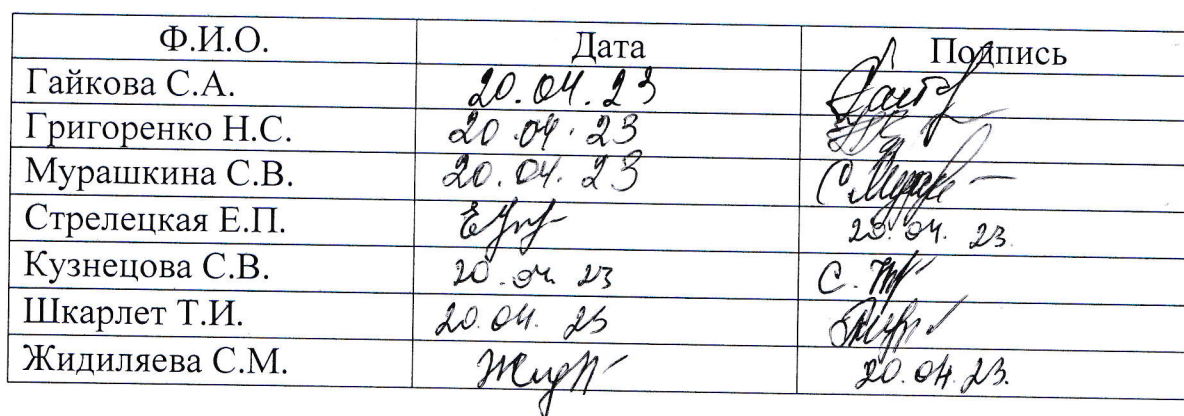 Ф.И.О. Дата Подпись
Гайкова С.А. 20.04.23
Григоренко Н.С. 20.04.23
Мурашкина С.В. 20.04.23
Стрелецкая Е.П. 20.04.23.
Кузнецова С.В. 20.04.23
Шкарлет Т.И. 20.04.23
Жидиляева С.М. 20.04.23.